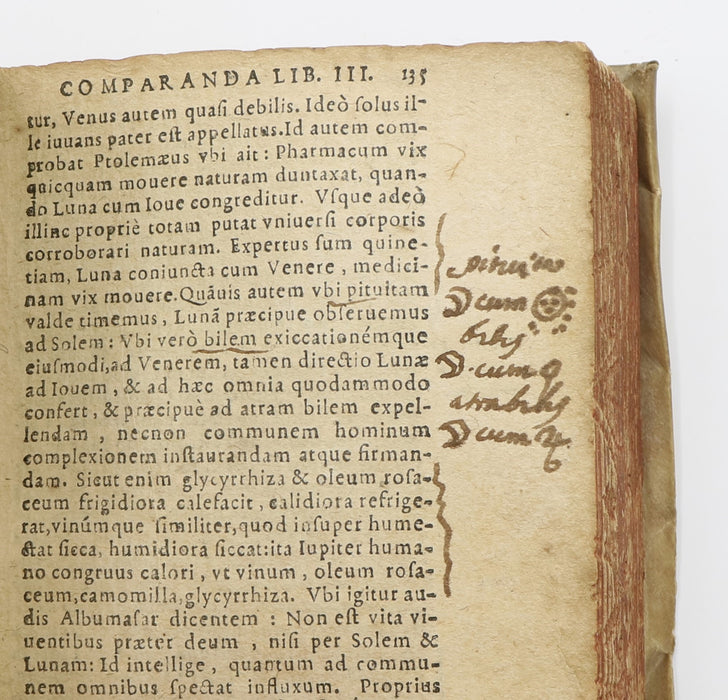 COMPARANDA LIB. III. 135
tur, Venus autem quaſi debilis. Ideò ſolus il-
le iuuans pater eſt appellatus. Id autem com-
probat Ptolemæus vbi ait : Pharmacum vix
quicquam mouere naturam duntaxat, quan-
do Luna cum Ioue congreditur. Vſque adeò
illinc propriè totam putat vniuerſi corporis
corroborari naturam. Expertus ſum quine-
tiam, Luna coniuncta cum Venere, medici-
nam vix mouere. Quãuis autem vbi pituitam
valde timemus, Lunã præcipue obſeruemus
ad Solem : Vbi verò bilem exiccationémque
eiuſmodi, ad Venerem, tamen directio Lunæ
ad Iouem, & ad hæc omnia quodammodo
confert, & præcipuè ad atram bilem expel-
lendam, necnon communem hominum
complexionem inſtaurandam atque firman-
dam. Sicut enim glycyrrhiza & oleum roſa-
ceum frigidiora calefacit, calidiora refrige-
rat, vinúmque ſimiliter, quod inſuper hume-
ctat ſicca, humidiora ſiccat: ita Iupiter huma-
no congruus calori, vt vinum, oleum roſa-
ceum, camomilla, glycyrrhiza. Vbi igitur au-
dis Albumaſar dicentem : Non eſt vita vi-
uentibus præter deum, niſi per Solem &
Lunam: Id intellige, quantum ad commu-
nem omnibus ſpectat influxum. Proprius
☽ cum ☉
bilis
☽ cum ♀
atra bilis
☽ cum ♃